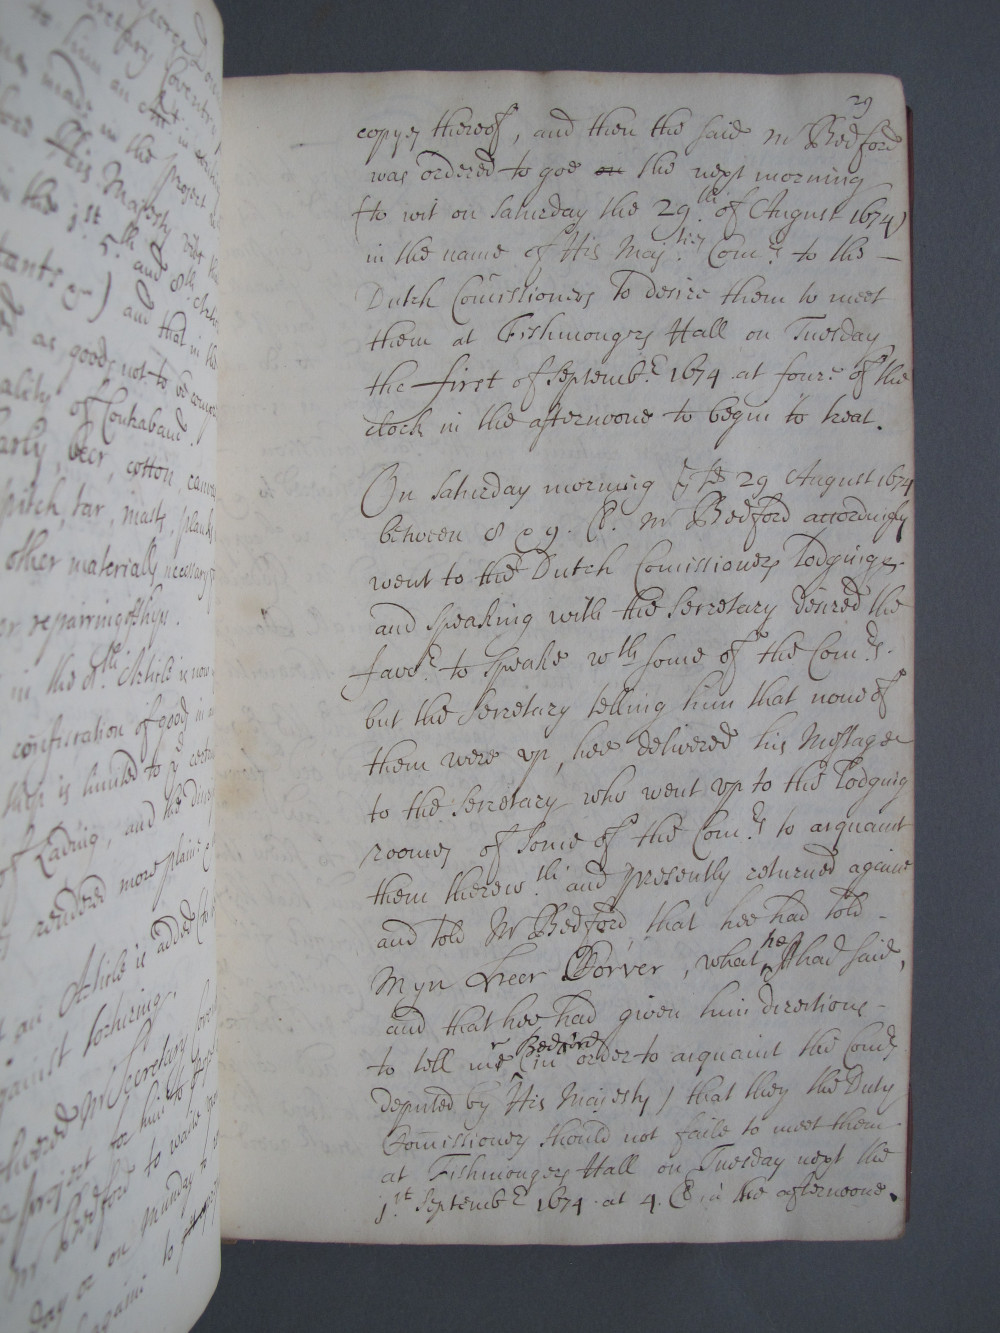 George Do
to him an Act in
me made in the project
His Majesty
in the 1st 5th and 8th Articles
tants &) and that in the
as goods not to be
ality of Contraband
arly beer, cotton, canvas
pitch, tar, masts, planks
other materialls necessary
or repairring of ships.
in the 8th. Article is now
confiscation of goods in
ship is limited to ye certain
of Lading, and the
rendered more plaine
an Article is added
against torturing.
Mr Secretary
project for him to
Mr Bedford to waite
day or on Munday to
againe to
29
copyes thereof, and then the said Mr Bedford
was ordered to goe on the next morning
(to wit on Saturday the 29.th of August 1674)
in the name of His Maj.ties Com.rs to the —
Dutch Comissioners To desire them to meet
them at Fishmongers Hall on Tuesday
the first of Septemb.r 1674 at foure of the
clock in the afternoone to begin to treat.
On Saturday morning ye 29 August 1674
between 8 & 9. Cl. Mr Bedford accordingly
went to the Dutch Comissioners Lodgings.
and speaking with the Secretary desired the
favo.r to speake wth some of the Com.rs.
but the Secretary telling him that none of
them were up, hee delivered his Message
to the Secretary who went up to the Lodging
roomes of some of the Com.rs to acquaint
them therew.th and presently returned againe
and told Mr Bedford, that hee had told -
Myn Heer Corver, what he had said,
and that hee had given him directions -
to tell mr Bedford (in order to acquaint the Com.rs
deputed by His Majesty) that they the Duty
Comissioners should not faile to meet them
at Fishmongers Hall on Tuesday next the
1.st Septemb.r 1674. at 4. Cl in the afternoone.